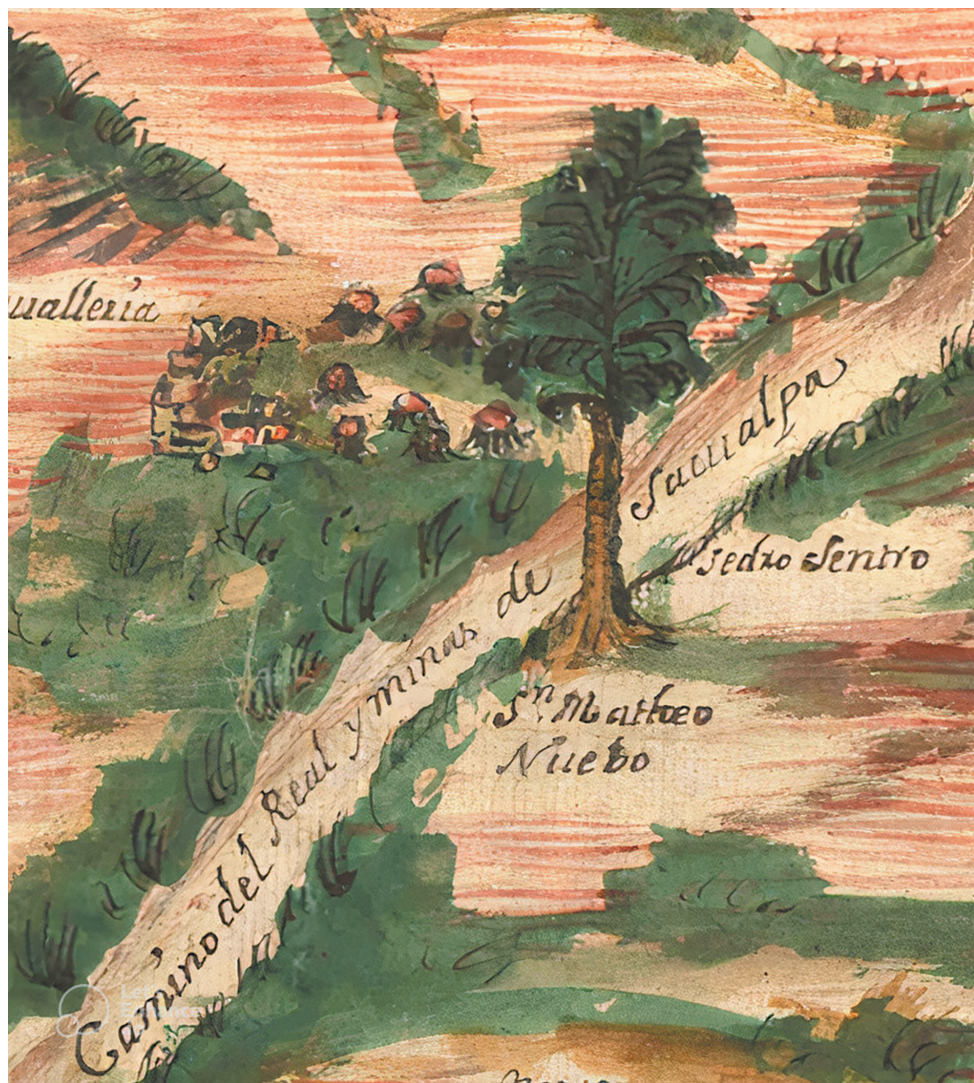 uallería
Camino del Real y minas de Sacualpa
Pedro Sentro
Sn. Matheo
Nuebo